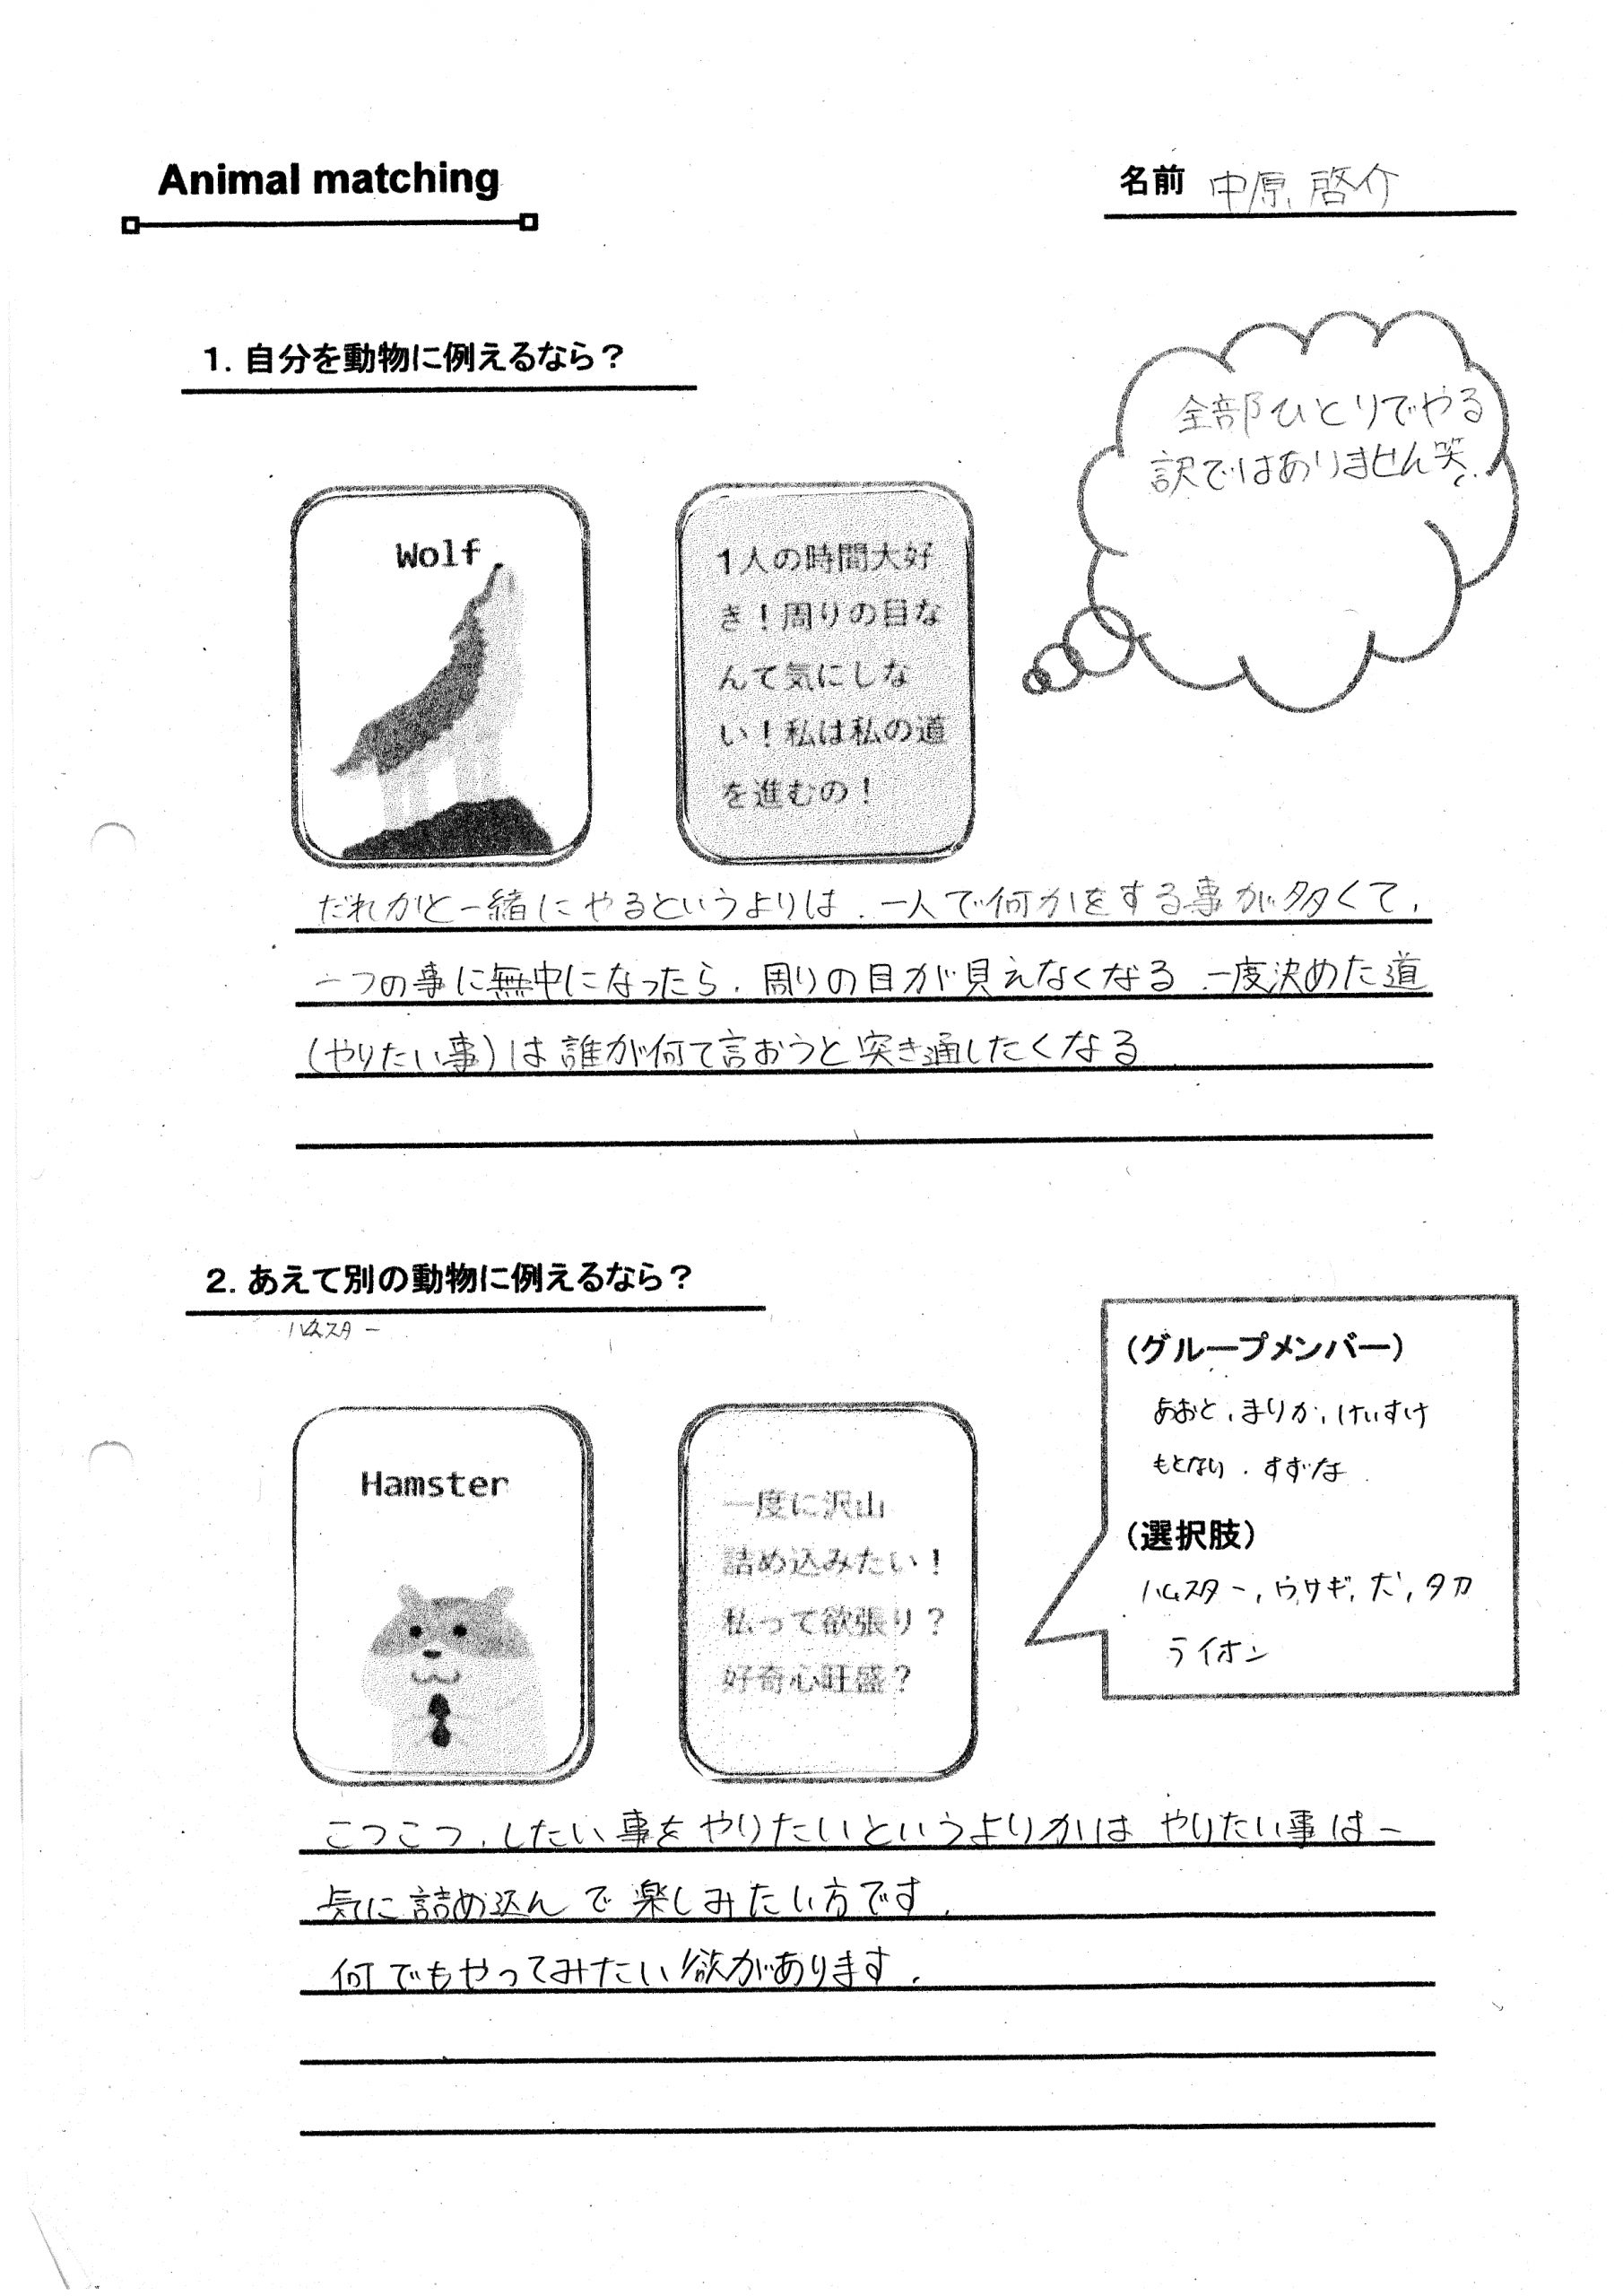 Animal matching
名前 中原 啓介
1. 自分を動物に例えるなら？
全部ひとりでやる
訳ではありません笑
Wolf
1人の時間大好
き！周りの目な
んて気にしな
い！私は私の道
を進むの！
だれかと一緒にやるというよりは、一人で何かをする事が多くて、
一つの事に無中になったら、周りの目が見えなくなる 一度決めた道
(やりたい事)は誰が何て言おうと突き通したくなる
2. あえて別の動物に例えるなら？
ハムスター
Hamster
一度に沢山
詰め込みたい！
私って欲張り？
好奇心旺盛？
（グループメンバー）
あおと、まりか、けいすけ
すずな
（選択肢）
ハムスター、ウサギ、犬、タカ
ライオン
こつこつ、したい事をやりたいというよりかは やりたい事は一
気に詰め込んで楽しみたい方です。
何でもやってみたい欲があります。